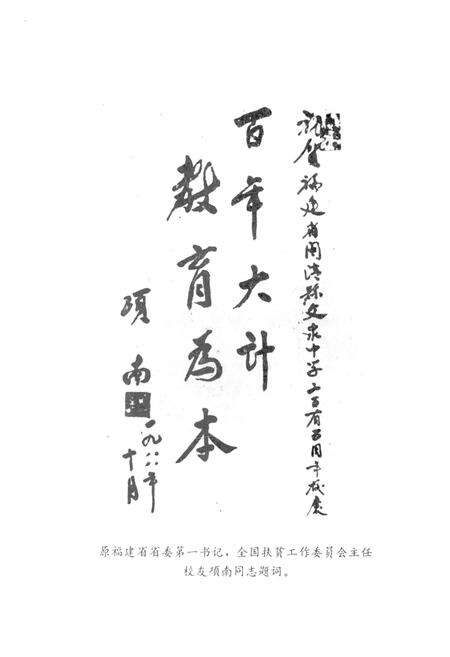 祝贺福建省闽清县文泉中学百有周年校庆
百年大计
教育为本
项南
一九八八年
十月
原福建省省委第一书记，全国扶贫工作委员会主任
校友项南同志题词。